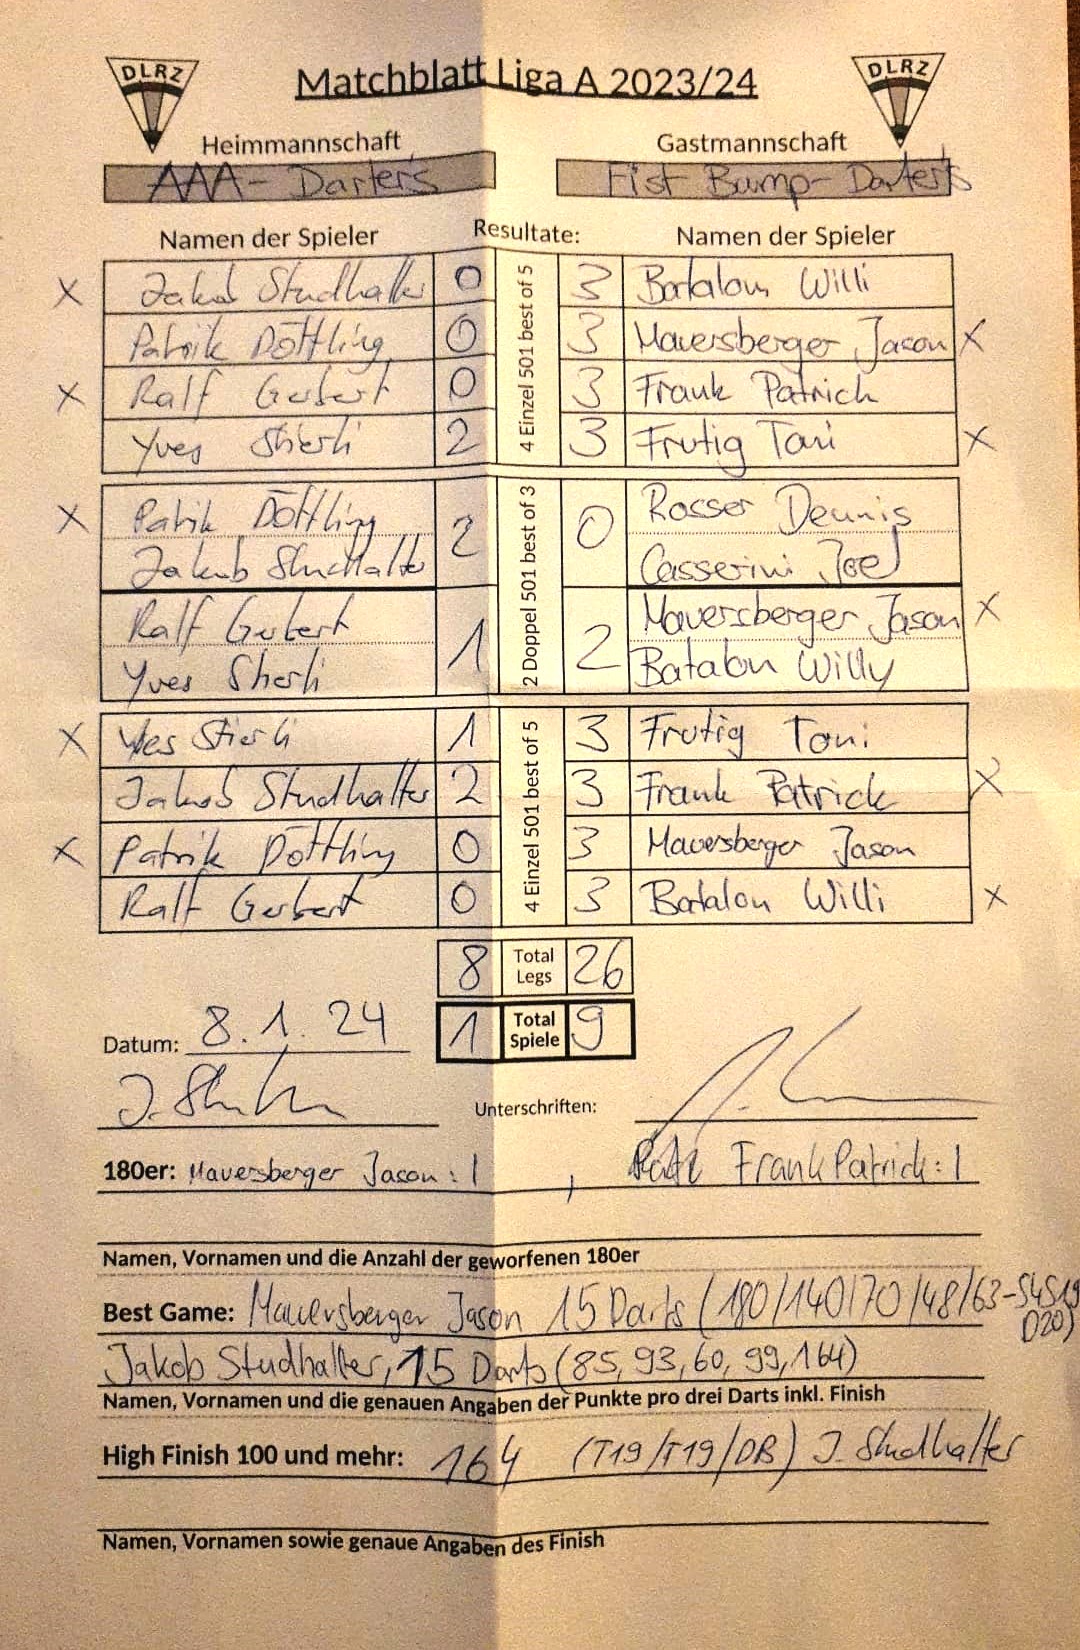 DLRZ Matchblatt Liga A 2023/24 DLRZ
Heimmannschaft Gastmannschaft
AAA-Darters Fist Bump-Darter's
Namen der Spieler Resultate: Namen der Spieler
X Jakob Studhalter 0 3 Batalon Willi
Patrik Döttling 0 3 Mauersberger Jason X
X Ralf Gerbert 0 3 Frank Patrick
Yves Stierli 2 3 Frutig Toni X
4 Einzel 501 best of 5
X Patrik Döttling 2 0 Rosser Dennis
Jakob Studhalter Casserini Joel
Ralf Gerbert 1 2 Mauersberger Jason X
Yves Stierli Batalon Willy
2 Doppel 501 best of 3
X Yves Stierli 1 3 Frutig Toni
Jakob Studhalter 2 3 Frank Patrick X
X Patrik Döttling 0 3 Mauersberger Jason
Ralf Gerbert 0 3 Batalon Willi X
4 Einzel 501 best of 5
8 Total Legs 26
Datum: 8.1.24 1 Total Spiele 9
Unterschriften:
180er: Mauersberger Jason: 1 , Frank Patrick: 1
Namen, Vornamen und die Anzahl der geworfenen 180er
Best Game: Mauersberger Jason 15 Darts (180/140/70/48/63-S4S19
D20)
Jakob Studhalter, 15 Darts (85, 93, 60, 99, 164)
Namen, Vornamen und die genauen Angaben der Punkte pro drei Darts inkl. Finish
High Finish 100 und mehr: 164 (T19/T19/DB) J. Studhalter
Namen, Vornamen sowie genaue Angaben des Finish